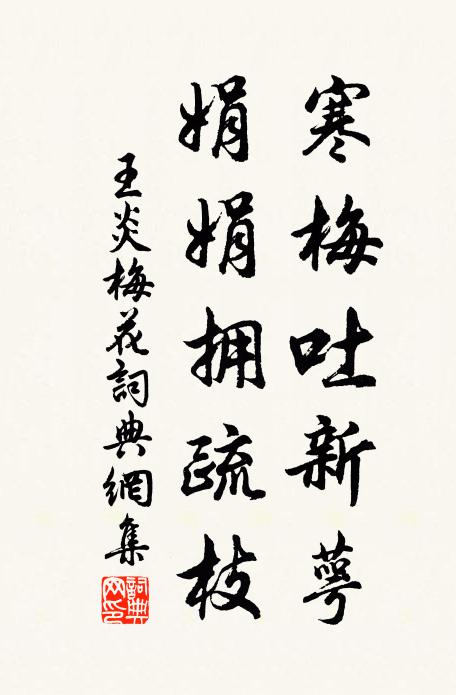 寒梅吐新萼
娟娟拥疏枝
王炎梅花詞典網集
詞典网印